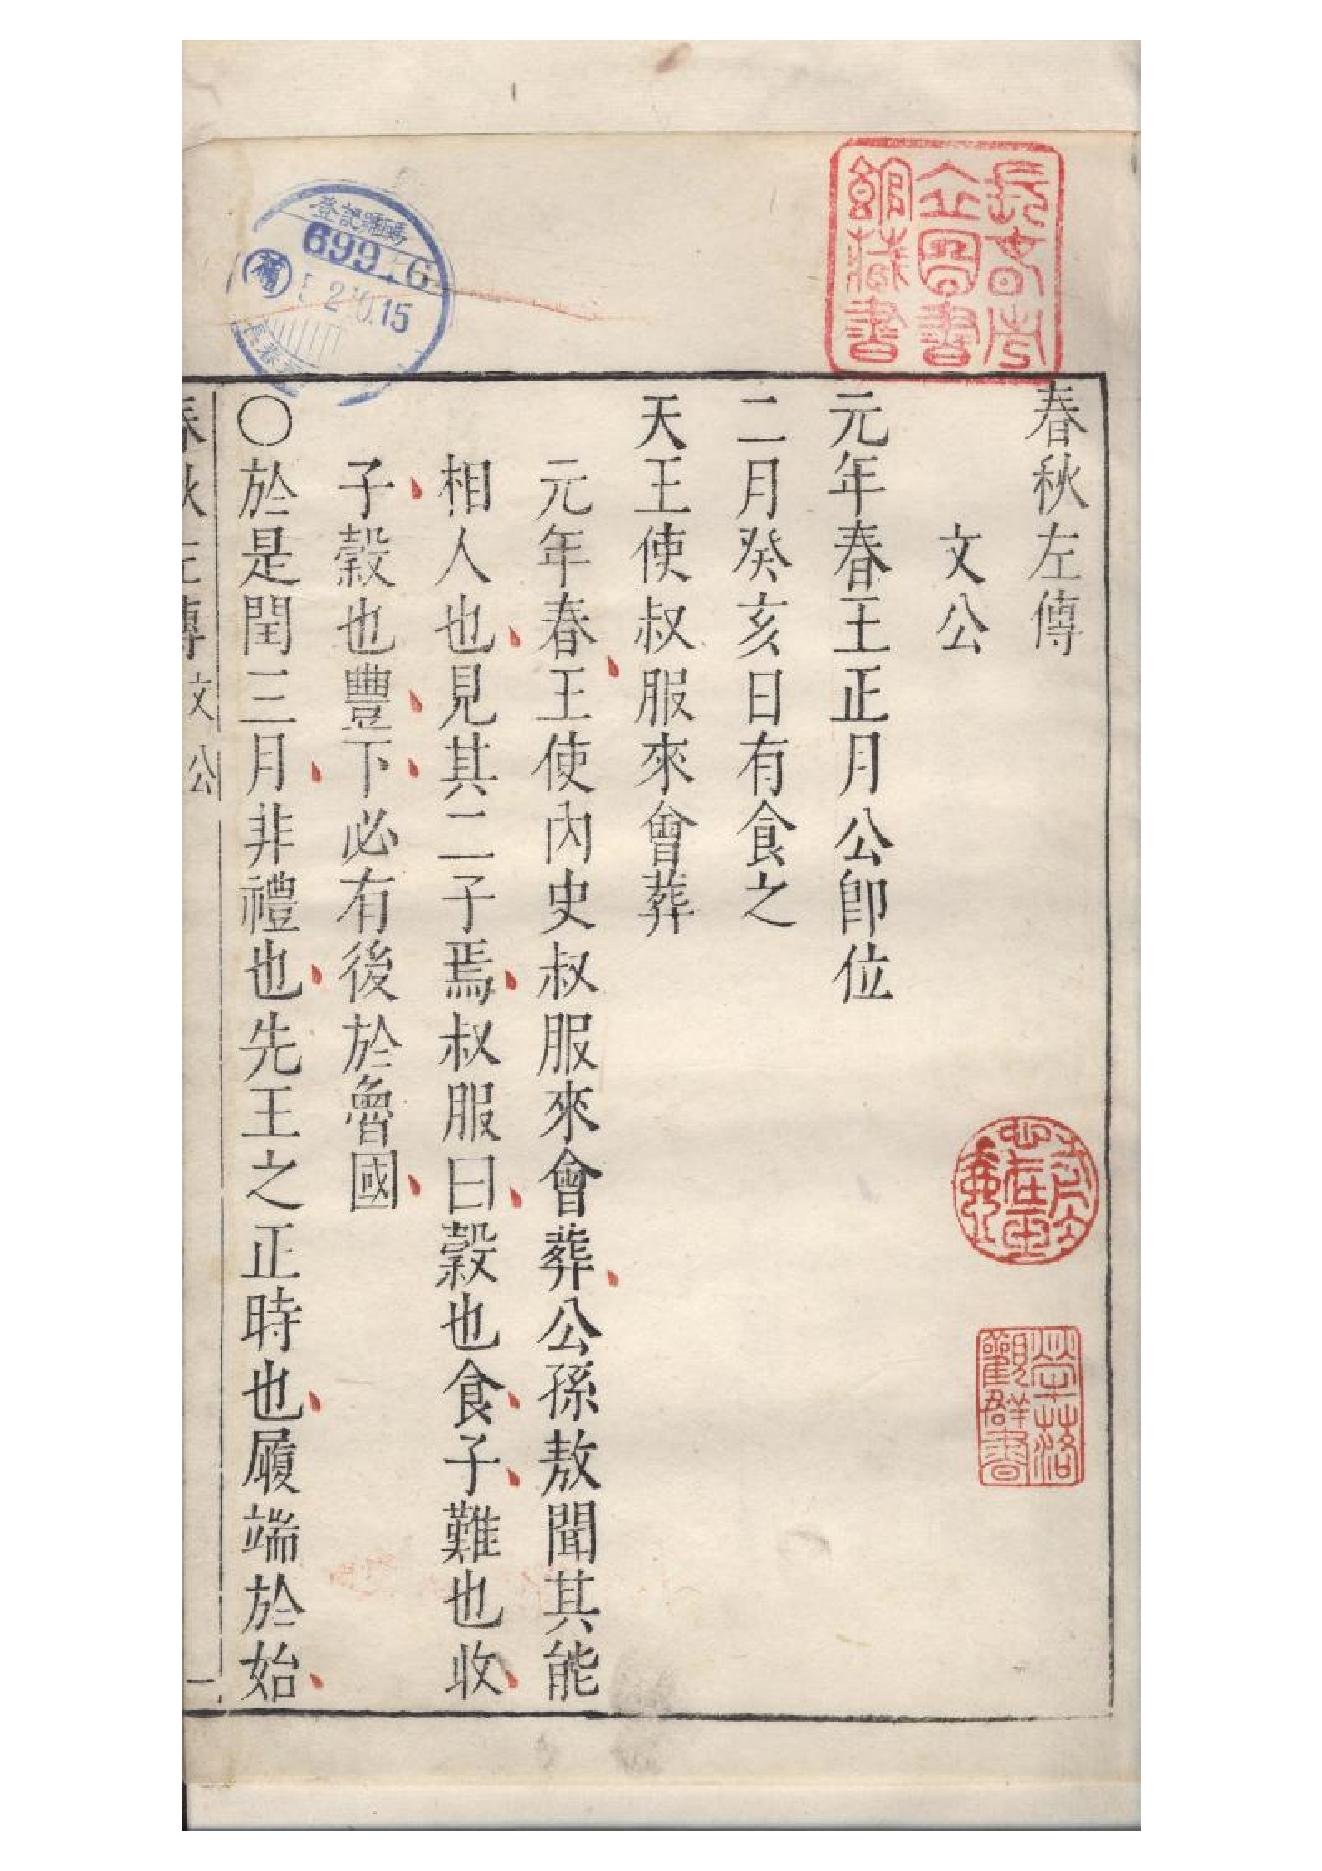 春秋左傳
文公
元年春王正月公卽位
二月癸亥日有食之
天王使叔服來會葬
元年春王使內史叔服來會葬公孫敖聞其能
相人也見其二子焉叔服曰穀也食子難也收
子穀也豐下必有後於魯國
〇於是閏三月非禮也先王之正時也履端於始
春秋左傳 文公 一
長春市
立圖書
館藏書
登記號碼
699
補
15
觀群書